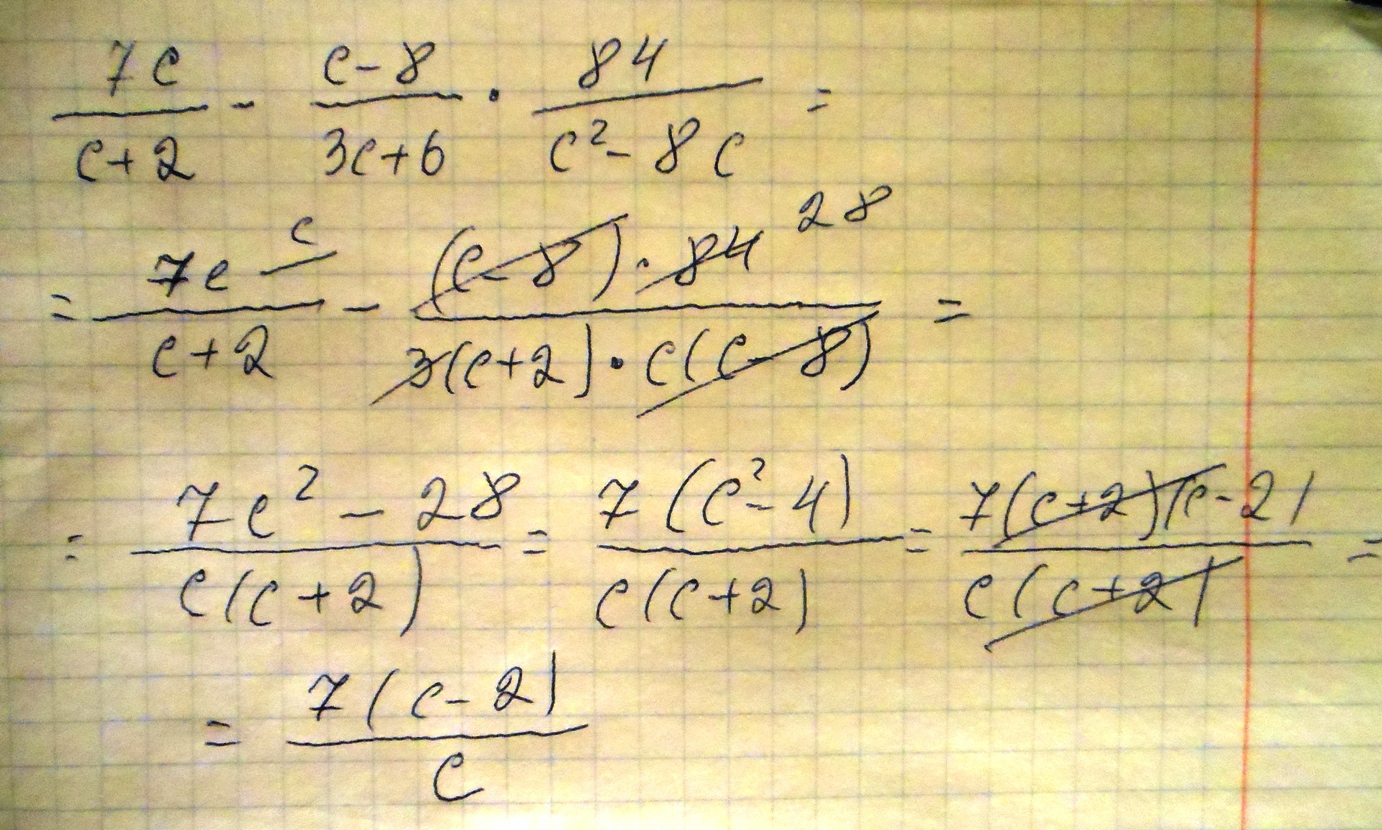 7c/(c+2) - (c-8)/(3c+6) · 84/(c²-8c) =
= 7c c/(c+2) - (c-8)·84 28/(3(c+2)·c(c-8)) =
= (7c²-28)/(c(c+2)) = 7(c²-4)/(c(c+2)) = 7(c+2)(c-2)/(c(c+2)) =
= 7(c-2)/c